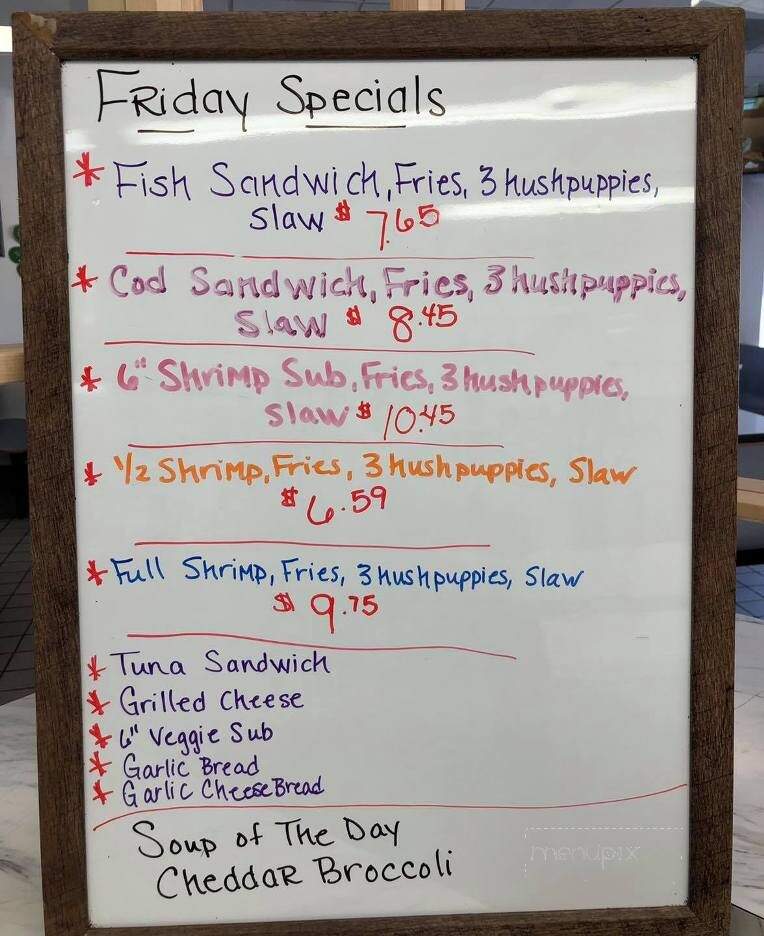 Friday Specials
* Fish Sandwich, Fries, 3 hushpuppies,
Slaw $ 7.65
* Cod Sandwich, Fries, 3 hushpuppies,
Slaw $ 8.45
* 6" Shrimp Sub, Fries, 3 hushpuppies,
Slaw $ 10.45
* 1/2 Shrimp, Fries, 3 hushpuppies, Slaw
$ 6.59
* Full Shrimp, Fries, 3 hushpuppies, Slaw
$ 9.75
* Tuna Sandwich
* Grilled Cheese
* 6" Veggie Sub
* Garlic Bread
* Garlic Cheese Bread
Soup of The Day
Cheddar Broccoli
menupix